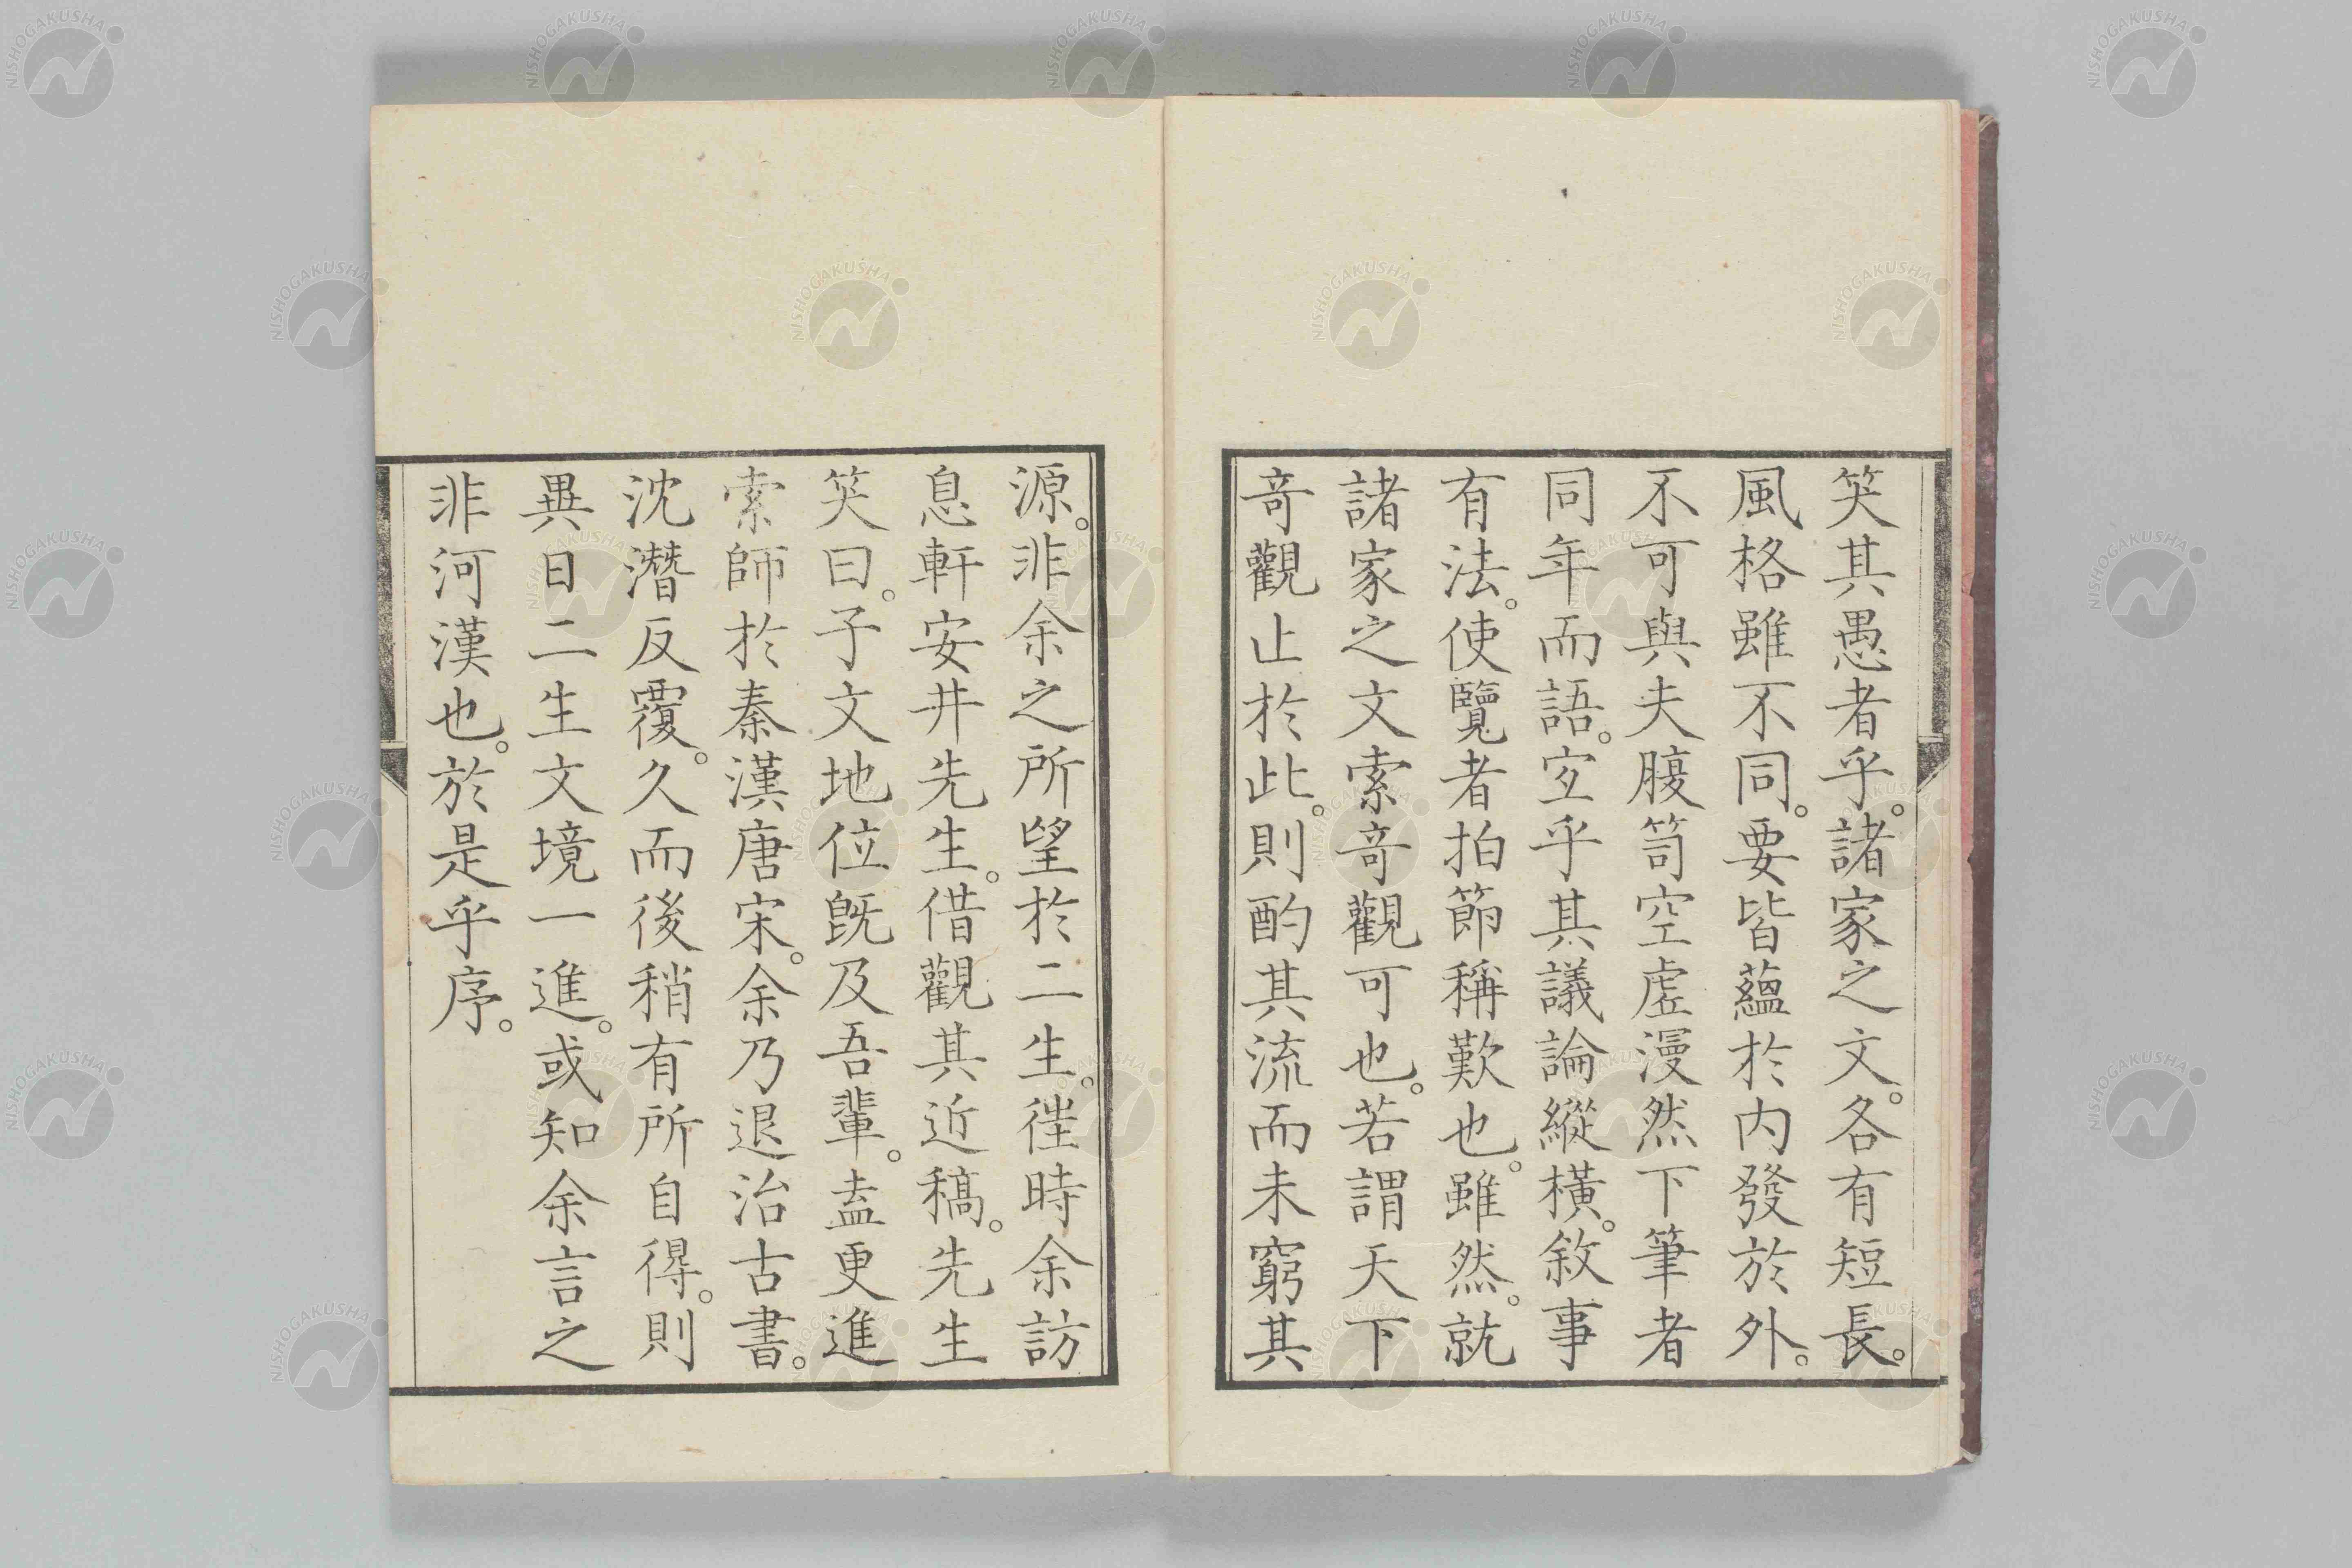 笑其愚者乎。諸家之文。各有短長。
風格雖不同。要皆蘊於内發於外。
不可與夫腹笥空虛漫然下筆者
同年而語。宜乎其議論縱橫。敘事
有法。使覽者拍節稱歎也。雖然。就
諸家之文索竒觀可也。若謂天下
竒觀止於此。則酌其流而未窮其
源。非余之所望於二生。徃時余訪
息軒安井先生。借觀其近稿。先生
笑曰。子文地位既及吾輩。盍更進
索師於秦漢唐宋。余乃退治古書。
沈潛反覆。久而後稍有所自得。則
異日二生文境一進。或知余言之
非河漢也。於是乎序。
NISHOGAKUSHA